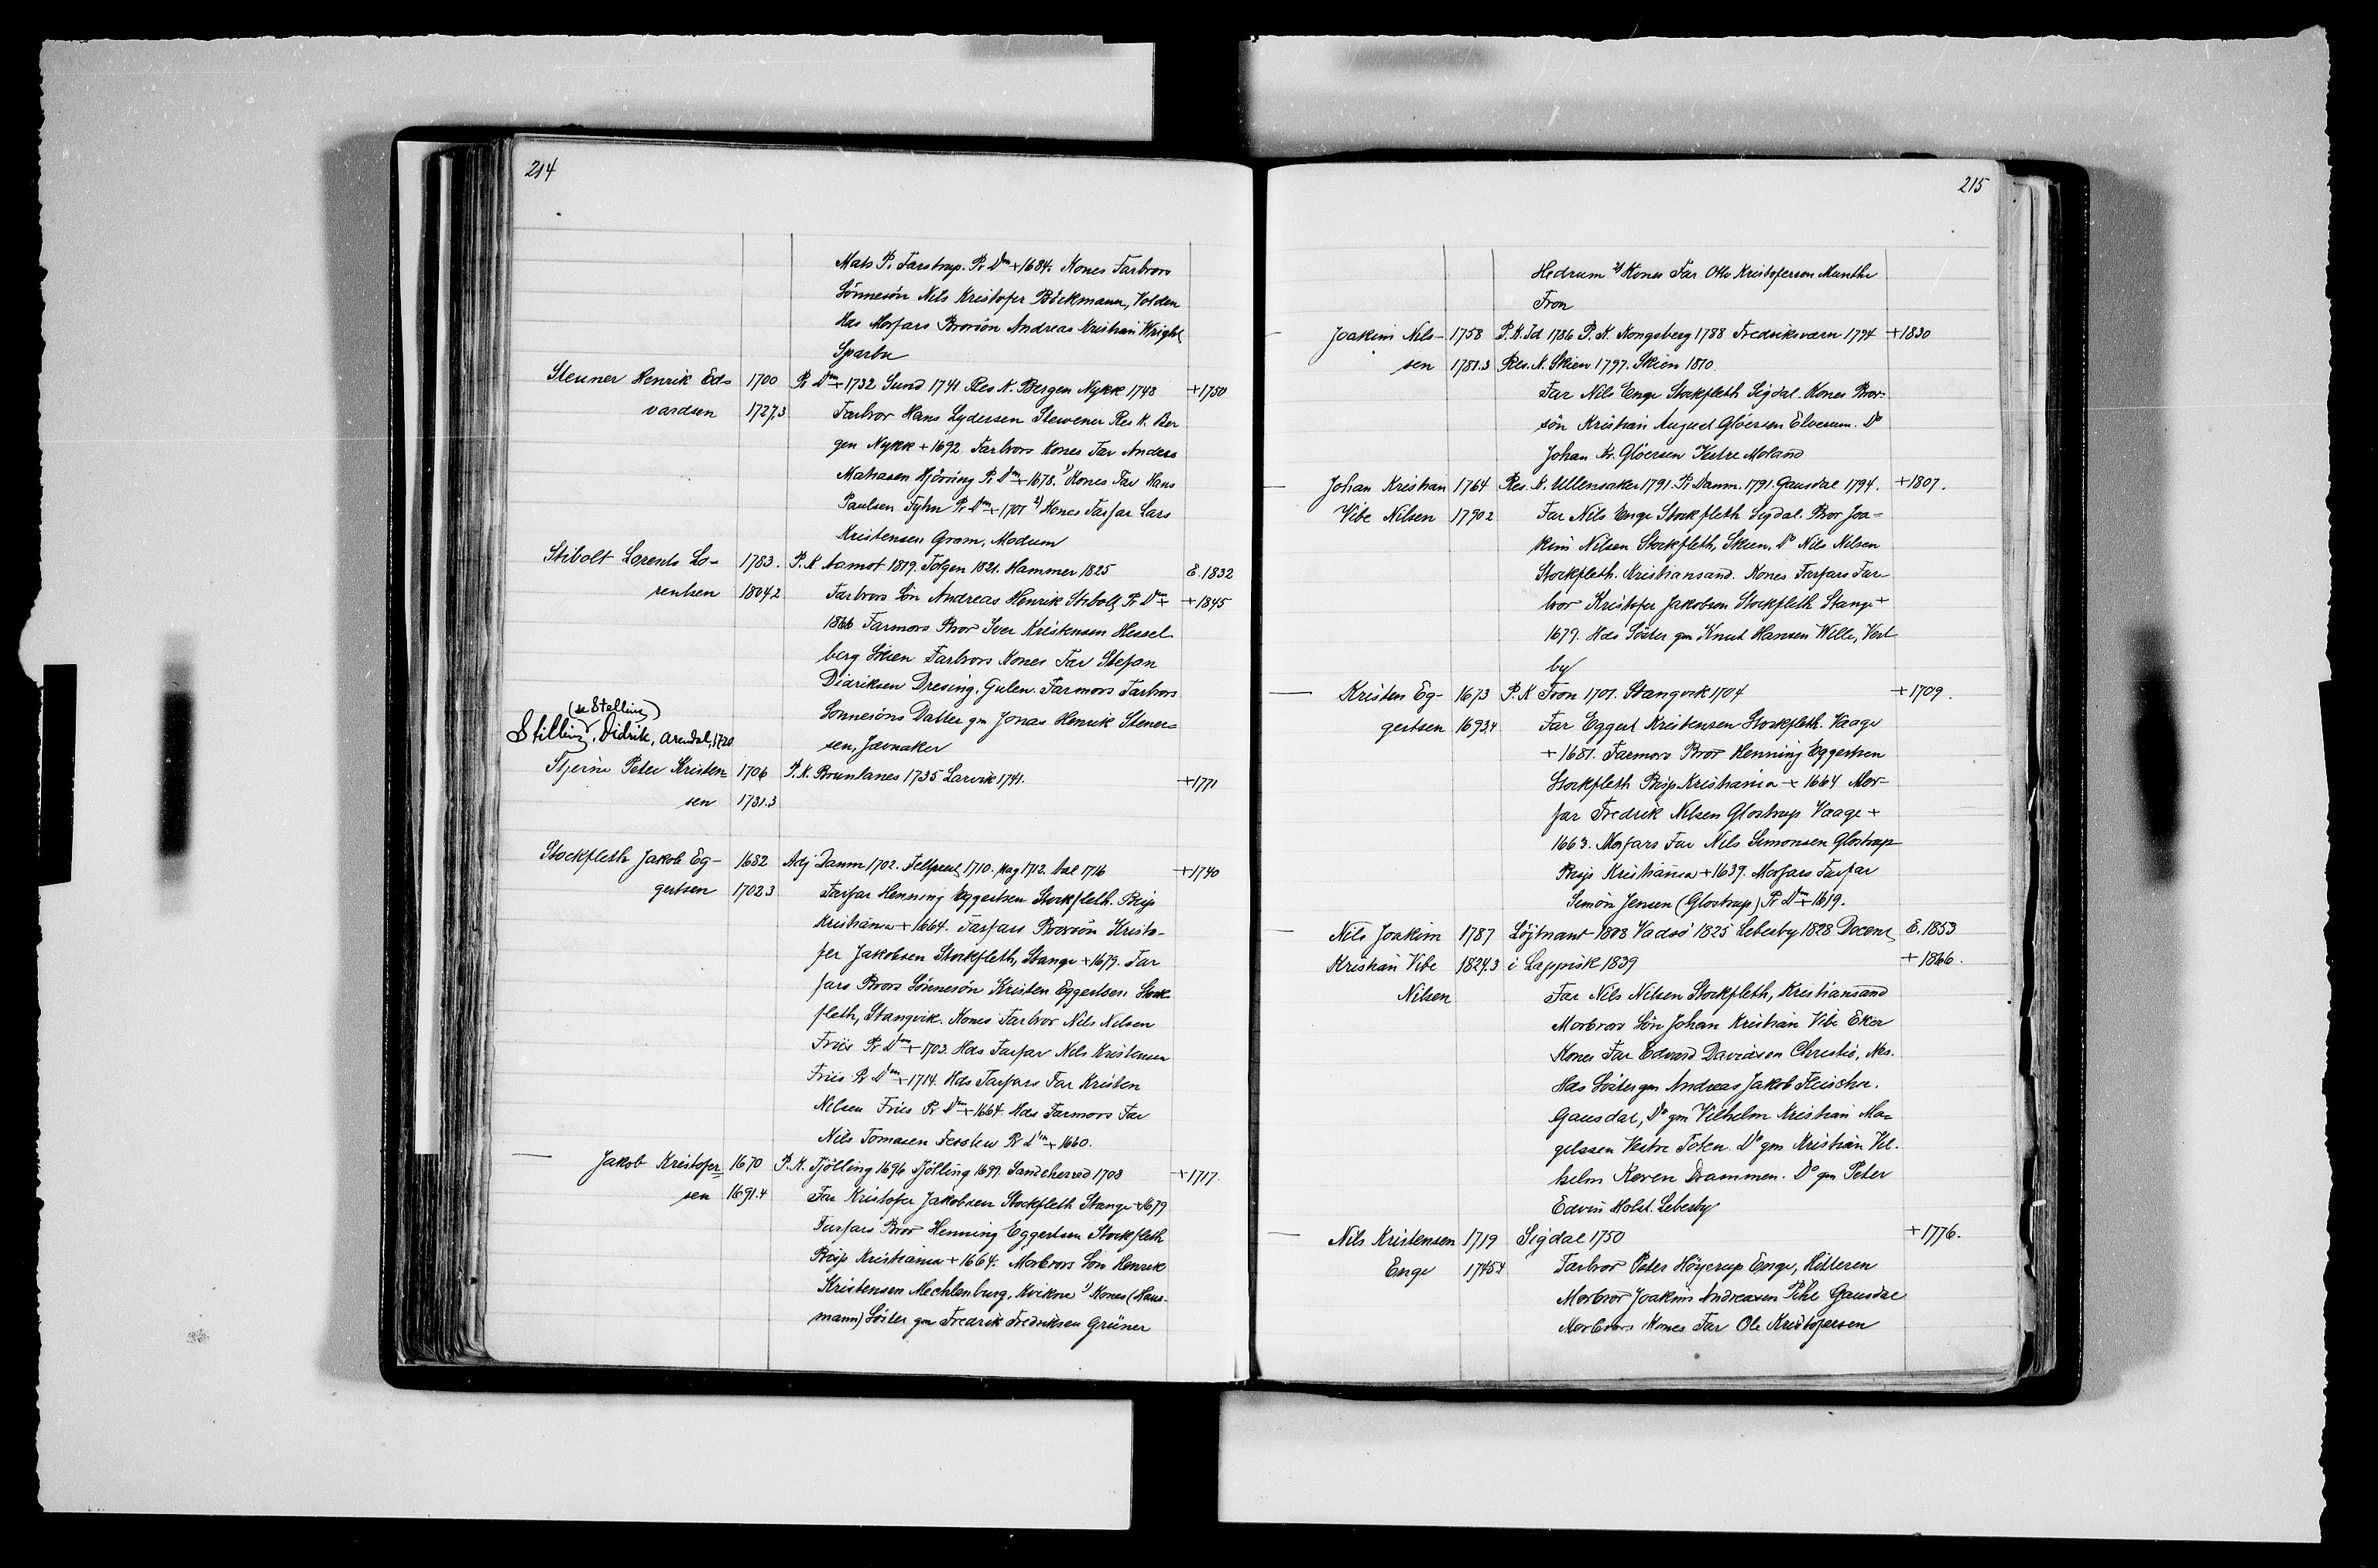 214
Mats P. Farstrup. Pr Dm + 1684. Kones Farbrors
Sönnesön Nils Kristofer Böckmann, Volden
Hds Morfars Brorsön Andreas Kristian Wright
Sparbu
Steuner Henrik Ed- 1700 Pr Dm + 1732 Sund 1741 Res K. Bergen Nykk 1743 +1750
vardsen 1727.3 Farbror Hans Lydersen Stewener Res K. Ber
gen Nykk + 1692. Farbrors Kones Far Anders
Matiasen Hjörring Pr Dm + 1678. 1) Kones Far Hans
Paulsen Fyhn Pr Dm + 1701 2) Kones Farfar Lars
Kristensen Gram, Modum
Stibolt Lorents Lo- 1783. P. K Aamot 1819. Tolgen 1821. Hammer 1825 E. 1832
rentsen 1804.2 Farbrors Sön Andreas Henrik Stibolt, Pr Dm + +1845
1866 Farmors Bror Iver Kristensen Hessel
berg Skien Farbrors Kones Far Stefan
Didriksen Dresing, Gulen. Farmors Farbrors
Sönnesöns Datter gm Jonas Henrik Stener=
sen, Jævnaker
(se Stelling)
Stilling, Didrik, Arendal, 1720
Stjerne Peter Kristen 1706 P. K. Brunlanes 1735 Larvik 1741. +1771
sen 1731.3
Stockfleth Jakob Eg- 1682 Adj Danm 1702. Feltprest 1710. Mag 1712. Aal 1716 +1740
gertsen 1702.3 Farfar Henning Eggertsen Stockfleth. Bisp
Kristiania + 1664. Farfars Brorsön Kristo-
fer Jakobsen Stockfleth, Stange + 1679. Far
fars Brors Sönnesön Kristen Eggertsen Stock
fleth, Stangvik. Kones Farbror Nils Nilsen
Friis Pr Dm + 1703. Hds Farfar Nils Kristensen
Friis Pr Dm + 1714. Hds Farfars Far Kristen
Nilsen Friis Pr Dm + 1664. Hds Farmors Far
Nils Tomasen Pr Dm + 1660.
— Jakob Kristofer= 1670 P. K. Tjölling 1696 Tjölling 1699. Sandeherred 1708 +1717.
sen 1691.4 Far Kristofer Jakobsen Stockfleth Stange + 1679
Farfars Bror Henning Eggertsen Stockfleth
Bisp Kristiania + 1664. Morbrors Sön Henrik
Kristensen Mechlenburg, Kvikne 1) Kones (Haus-
mann) Söster gm Fredrik Fredriksen Grüner
215
Hedrum 2) Kones Far Otto Kristofersen Munthe
Fron
— Joakim Nils- 1758 P. K. Id 1786 P. K. Kongsberg 1788 Fredriksværn 1794 +1830
sen 1781.3 Res. K. Skien 1797. Skien 1810.
Far Nils Enge Stockfleth Sigdal. Kones Bror-
sön Kristian August Glöersen Elverum. Do
Johan Kr. Glöersen Vestre Moland
— Johan Kristian 1764 Res. K. Ullensaker 1791. Pr Danm. 1791. Gausdal 1794. +1807.
Vibe Nilsen 1790.2 Far Nils Enge Stockfleth Sigdal. Bror Joa-
kim Nilsen Stockfleth, Skien. Do Nils Nilsen
Stockfleth. Kristiansand. Kones Farfars Far-
bror Kristofer Jakobsen Stockfleth Stange +
1679. Hds Söster gm Knut Hansen Wille, Vest
by
— Kristen Eg- 1673 P. K Fron 1701. Stangvik 1704 +1709.
gertsen 1693.4 Far Eggert Kristensen Stockfleth. Vaage
+ 1681. Farmors Bror Henning Eggertsen
Stockfleth Bisp Kristiania + 1664 Mor-
far Fredrik Nilsen Glostrup Vaage +
1663. Morfars Far Nils Simonsen Glostrup
Bisp Kristiania + 1639. Morfars Farfar
Simon Jensen (Glostrup) Pr Dm + 1619.
— Nils Joakim 1787 Löjtnant 1808 Vadsö 1825 Lebesby 1828 Docent E. 1853
Kristian Vibe 1824.3 i Lappisk 1839 + 1866.
Nilsen Far Nils Nilsen Stockfleth, Kristiansand
Morbrors Sön Johan Kristian Vibe Eker
Kones Far Edvard Davidsen Christie, Nes.
Hds Söster gm Andreas Jakob Fleischer.
Gausdal, Do gm Vilhelm Kristian Ma=
gelssen Vestre Toten. Do gm Kristian Vil-
helm Koren Drammen. Do gm Peter
Edvin Holst. Lebesby
— Nils Kristensen 1719 Sigdal 1750 +1776.
Enge 1745.4 Farbror Peter Höyerup Enge, Hitteren
Morbror Joakim Andreasen Pihl Gausdal
Morbrors Kones Far Ole Kristofersen